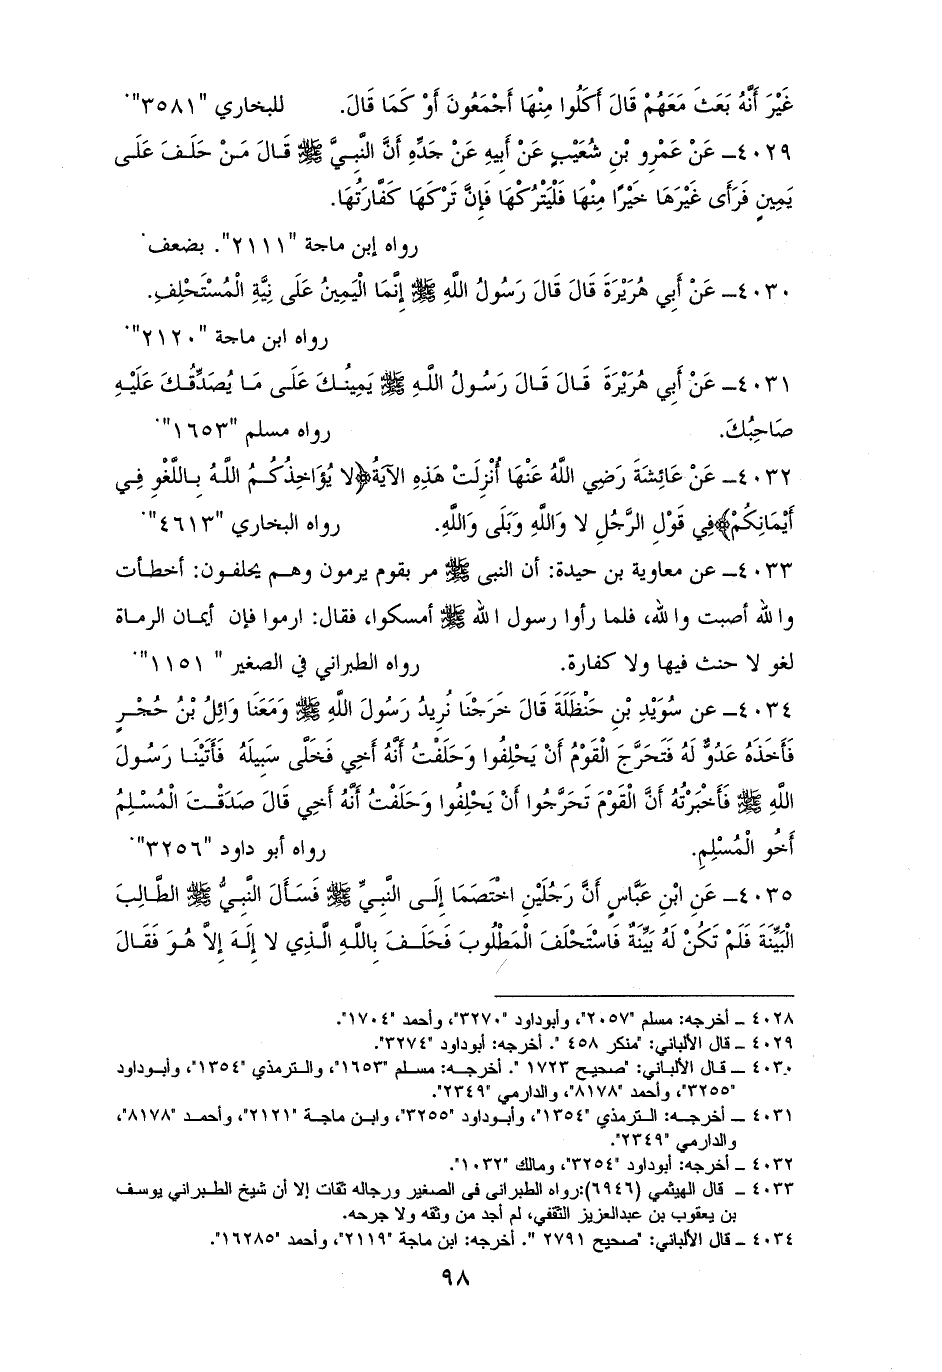 غَيْرَ أَنَّهُ بَعَثَ مَعَهُمْ قَالَ أَكَلُوا مِنْهَا أَجْمَعُونَ أَوْ كَمَا قَالَ. للبخاري "٣٥٨١".
٤٠٢٩ـ عَنْ عَمْرِو بْنِ شُعَيْبٍ عَنْ أَبِيهِ عَنْ جَدِّهِ أَنَّ النَّبِيَّ ﷺ قَالَ مَنْ حَلَفَ عَلَى
يَمِينٍ فَرَأَى غَيْرَهَا خَيْرًا مِنْهَا فَلْيَتْرُكْهَا فَإِنَّ تَرْكَهَا كَفَّارَتُهَا.
رواه إبن ماجة "٢١١١". بضعف.
٤٠٣٠ـ عَنْ أَبِي هُرَيْرَةَ قَالَ قَالَ رَسُولُ اللَّهِ ﷺ إِنَّمَا الْيَمِينُ عَلَى نِيَّةِ الْمُسْتَحْلِفِ.
رواه ابن ماجة "٢١٢٠".
٤٠٣١ـ عَنْ أَبِي هُرَيْرَةَ قَالَ قَالَ رَسُولُ اللَّهِ ﷺ يَمِينُكَ عَلَى مَا يُصَدِّقُكَ عَلَيْهِ
صَاحِبُكَ. رواه مسلم "١٦٥٣".
٤٠٣٢ـ عَنْ عَائِشَةَ رَضِي اللَّهُ عَنْهَا أُنْزِلَتْ هَذِهِ الآيَةُ﴿لا يُؤَاخِذُكُمُ اللَّهُ بِاللَّغْوِ فِي
أَيْمَانِكُمْ﴾فِي قَوْلِ الرَّجُلِ لا وَاللَّهِ وَبَلَى وَاللَّهِ. رواه البخاري "٤٦١٣".
٤٠٣٣ـ عن معاوية بن حيدة: أن النبى ﷺ مر بقوم يرمون وهم يحلفون: أخطأت
والله أصبت والله، فلما رأوا رسول الله ﷺ أمسكوا، فقال: ارموا فإن أيمان الرماة
لغو لا حنث فيها ولا كفارة. رواه الطبراني في الصغير " ١١٥١".
٤٠٣٤ـ عن سُوَيْدِ بْنِ حَنْظَلَةَ قَالَ خَرَجْنَا نُرِيدُ رَسُولَ اللَّهِ ﷺ وَمَعَنَا وَائِلُ بْنُ حُجْرٍ
فَأَخَذَهُ عَدُوٌّ لَهُ فَتَحَرَّجَ الْقَوْمُ أَنْ يَحْلِفُوا وَحَلَفْتُ أَنَّهُ أَخِي فَخَلَّى سَبِيلَهُ فَأَتَيْنَا رَسُولَ
اللَّهِ ﷺ فَأَخْبَرْتُهُ أَنَّ الْقَوْمَ تَحَرَّجُوا أَنْ يَحْلِفُوا وَحَلَفْتُ أَنَّهُ أَخِي قَالَ صَدَقْتَ الْمُسْلِمُ
أَخُو الْمُسْلِمِ. رواه أبو داود "٣٢٥٦".
٤٠٣٥ـ عَنِ ابْنِ عَبَّاسٍ أَنَّ رَجُلَيْنِ اخْتَصَمَا إِلَى النَّبِيِّ ﷺ فَسَأَلَ النَّبِيُّ ﷺ الطَّالِبَ
الْبَيِّنَةَ فَلَمْ تَكُنْ لَهُ بَيِّنَةٌ فَاسْتَحْلَفَ الْمَطْلُوبَ فَحَلَفَ بِاللَّهِ الَّذِي لا إِلَهَ إِلاَّ هُوَ فَقَالَ
٤٠٢٨ ـ أخرجه: مسلم "٢٠٥٧"، وأبوداود "٣٢٧٠"، وأحمد "١٧٠٤".
٤٠٢٩ ـ قال الألباني: "منكر ٤٥٨ ". أخرجه: أبوداود "٣٢٧٤".
٤٠٣٠ ـ قال الألباني: "صحيح ١٧٢٣ ". أخرجه: مسلم "١٦٥٣"، والترمذي "١٣٥٤"، وأبوداود
"٣٢٥٥"، وأحمد "٨١٧٨"، والدارمي "٢٣٤٩".
٤٠٣١ ـ أخرجه: الترمذي "١٣٥٤"، وأبوداود "٣٢٥٥"، وابن ماجة "٢١٢١"، وأحمد "٨١٧٨"،
والدارمي "٢٣٤٩".
٤٠٣٢ ـ أخرجه: أبوداود "٣٢٥٤"، ومالك "١٠٣٢".
٤٠٣٣ ـ قال الهيثمي (٦٩٤٦):رواه الطبرانى فى الصغير ورجاله ثقات إلا أن شيخ الطبراني يوسف
بن يعقوب بن عبدالعزيز الثقفي، لم أجد من وثقه ولا جرحه.
٤٠٣٤ ـ قال الألباني: "صحيح ٢٧٩١ ". أخرجه: ابن ماجة "٢١١٩"، وأحمد "١٦٢٨٥".
٩٨